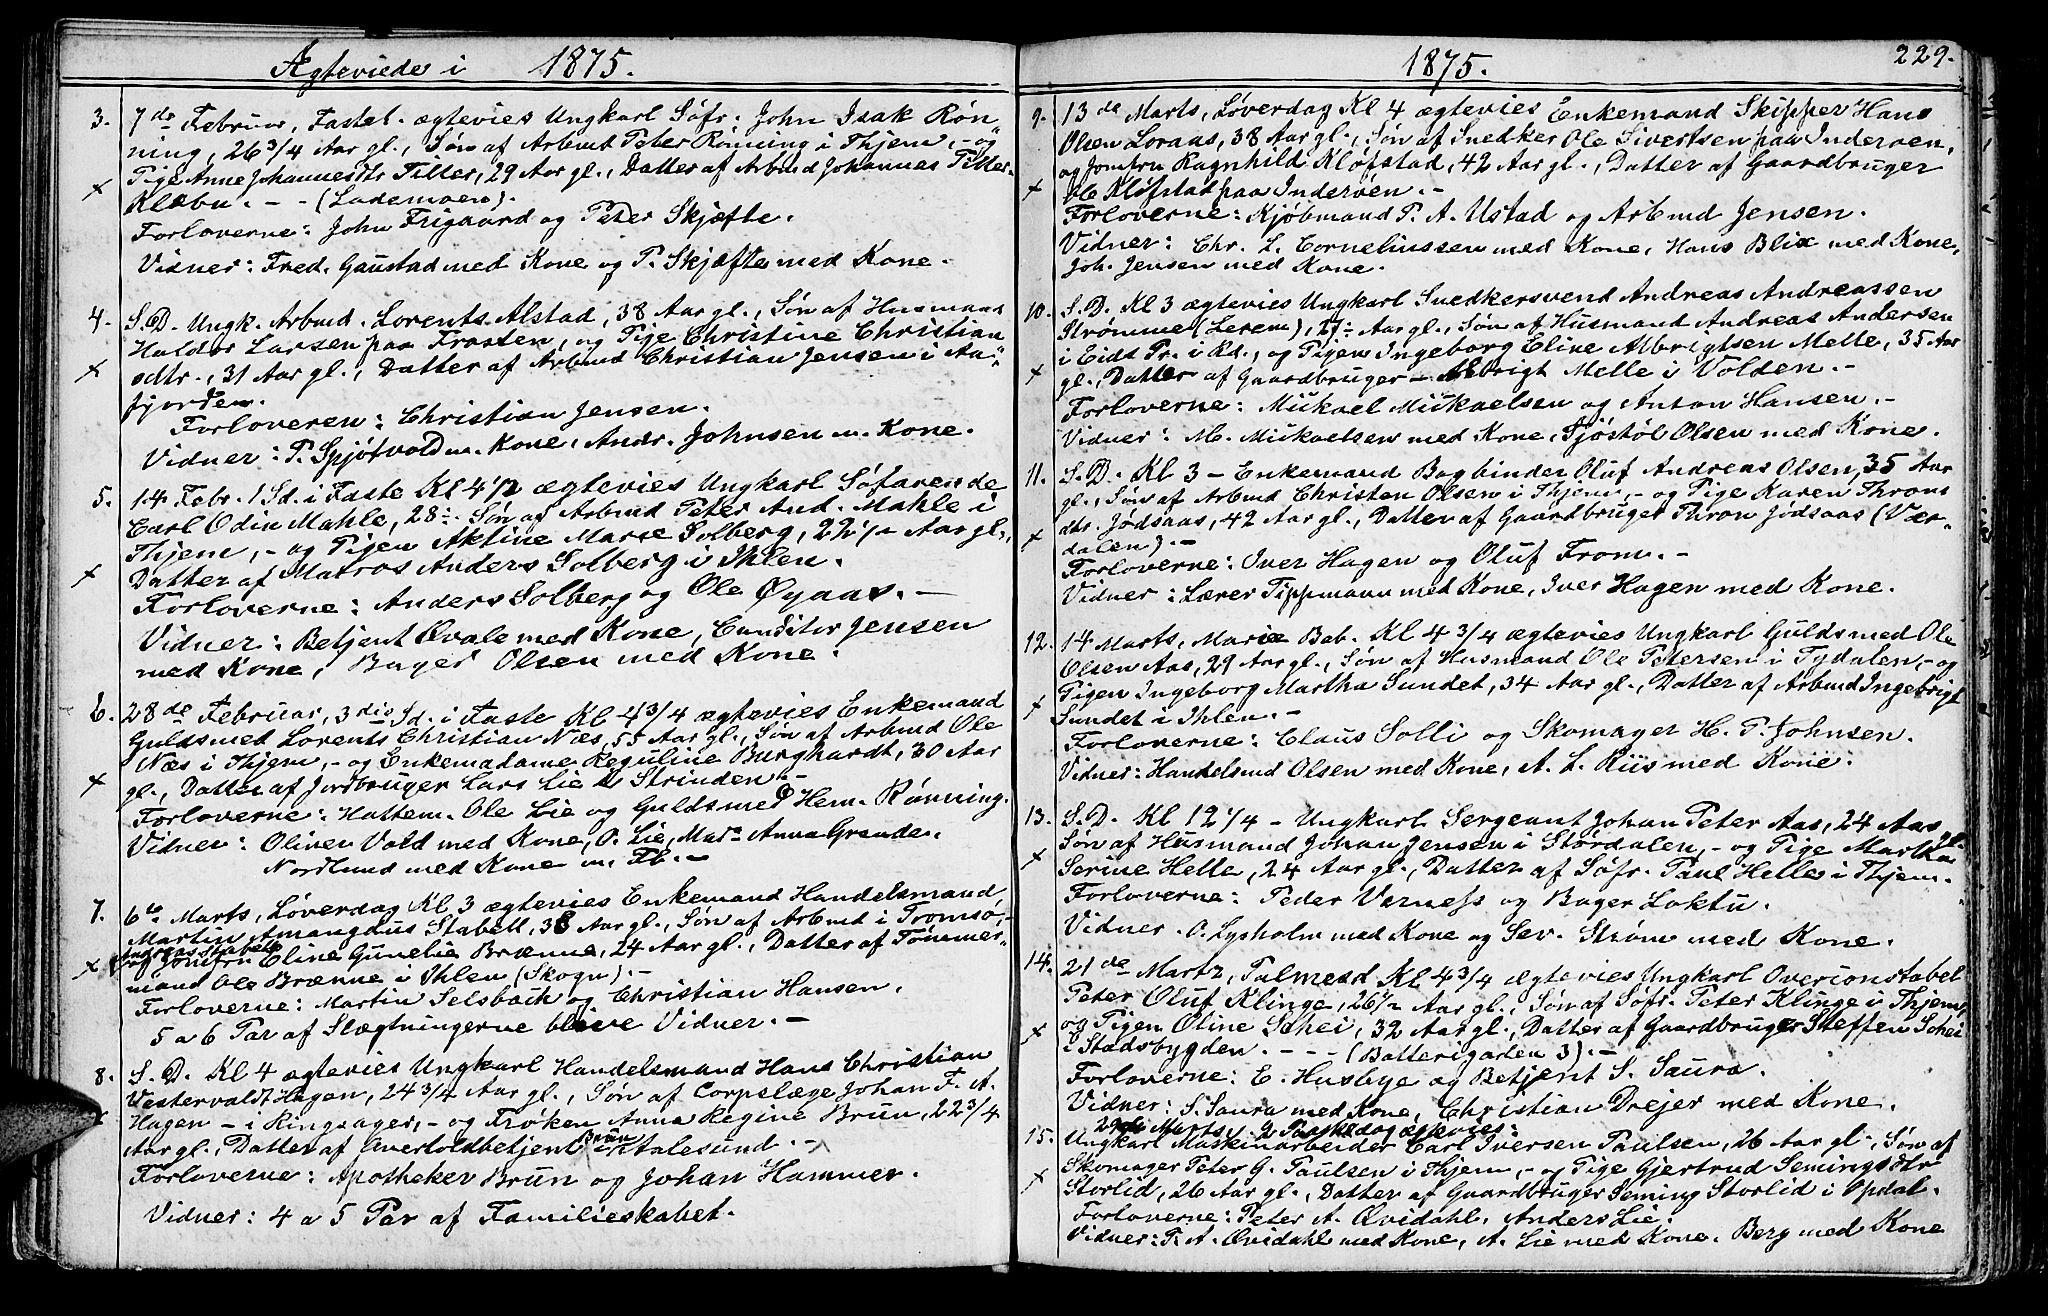 Ægteviede i 1875.
3. 7de Februar, Fastel. ægtevies Ungkarl Søfr. John Isak Røn„
ning, 26 3/4 Aar gl., Søn af Arbmd Peter Rønning i Thjem, - og
Pige Anne Johannesdtr Tiller, 29 Aar gl., Datter af Arbmd Johannes Tiller
x Klæbu. - - (Lademoen).
Forloverne: John Frigaard og Peder Skjæfte.
Vidner: Fred. Gaustad med Kone og P. Skjæfte med Kone.
4. S.D. Ungk. Arbmd. Lorents Alstad, 38 Aar gl., Søn af Husmand
Haldor Larsen paa Frosten, og Pige Christine Christian
x sdtr., 31 Aar gl., Datter af Arbmd Christian Jensen i Aa„
fjorden.
Forloveren: Christian Jensen.
Vidner: P. Spjøtvold m. Kone, Andr. Johnsen m. Kone.
5. 14 Febr. 1 Sd. i Faste Kl 4 1/2 ægtevies Ungkarl Søfarende
Carl Odin Mahle, 28 Søn af Arbmd Peter And. Mahle i
Thjem, - og Pigen Aktine Marie Solberg, 22 1/2 Aar gl.,
x Datter af Matros Anders Solberg i Ihlen.
Forloverne: Anders Solberg og Ole Øyaas. -
Vidner: Betjent Øvale med Kone, Conditor Jensen
med Kone, Bager Olsen med Kone.
6. 28de Februar, 3die Sd. i Faste Kl 4 3/4 ægtevies Enkemand
Guldsmed Lorents Christian Næs, 55 Aar gl., Søn af Arbmd Ole
Næs i Thjem, - og Enkemadame Reguline Burghardt, 30 Aar
x gl., Datter af Jordbruger Lars Lie i Strinden. -
Forloverne: Hattem. Ole Lie og Guldsmed Hem. Rønning.
Vidner: Oliver Vold med Kone, O. Lie, Mad. Anna Grande.
Nordlund med Kone m. Fl. -
7. 6te Marts, Løverdag Kl 3 ægtevies Enkemand Handelsmand,
Martin Amangdus Stabell, 38 Aar gl., Søn af Arbmd i Tromsø, -
Andreas Stabell
x og Jomfru Eline Gunelie Brænne, 24 Aar gl., Datter af Tømmer„
mand Ole Brænne i Ihlen (Skogn). -
Forloverne: Martin Selsbach og Christian Hansen.
5 a 6 Par af Slægtningerne blive Vidner. -
8. S. D. Kl 4 ægtevies Ungkarl Handelsmand Hans Christian
Vestervaldt Hagen, 24 3/4 Aar gl., Søn af Corpslæge Johan F. A.
x Hagen - i Ringsager, - og Frøken Anna Regine Brun, 22 3/4
Aar gl., Datter af Overtoldbetjent Brun i Aalesund. -
Forloverne: Apotheker Brun og Johan Hammer.
Vidner: 4 a 5 Par af Familieskabet.
1875. 229.
9. 13de Marts, Løverdag Kl 4 ægtevies Enkemand Skipper Hans
Olsen Loraas, 38 Aar gl., Søn af Snedker Ole Sivertsen paa Inderøen,
og Jomfru Ragnhild Kløfstad, 42 Aar gl., Datter af Gaardbruger
x Ole Kløfstad paa Inderøen. -
Forloverne: Kjøbmand P. A. Ustad og Arbmd Jensen.
Vidner: Chr. L. Corneliussen med Kone, Hans Blix med Kone,
Joh. Jensen med Kone.
10. S. D. Kl 3 ægtevies Ungkarl Snedkersvend Andreas Andreassen
Strømme (Lerem), 27 Aar gl., Søn af Husmand Andreas Andersen
i Eids Pr. i Rd., og Pigen Ingeborg Eline Albrigtsen Melle, 35 Aar
x gl., Datter af Gaardbruger - Albrigt Melle i Volden. -
Forloverne: Mikael Mikaelsen og Anton Hansen. -
Vidner: M. Mikaelsen med Kone, Sjøstøl Olsen med Kone.
11. S. D. Kl 3 - Enkemand Bogbinder Oluf Andreas Olsen, 35 Aar
gl., Søn af Arbmd Christen Olsen i Thjem, - og Pige Karen Throns
dtr. Jødsaas, 42 Aar gl., Datter af Gaardbruger Thron Jødsaas (Vær„
x dalen). -
Forloverne: Iver Hagen og Oluf From. -
Vidner: Lærer Tippmann med Kone, Iver Hagen med Kone.
12. 14 Marts, Mariæ Beb. Kl 4 3/4 ægtevies Ungkarl Guldsmed Ole
Olsen Aas, 29 Aar gl., Søn af Husmand Ole Petersen i Tydalen, - og
Pigen Ingeborg Martha Sundet, 34 Aar gl., Datter af Arbmd Ingebrigt
x Sundet i Ihlen. -
Forloverne: Claus Solli og Skomager H. P. Johnsen.
Vidner: Handelsmd Olsen med Kone, A. L. Riis med Kone.
13. S. D. Kl 12 1/4 - Ungkarl Sergeant Johan Peter Aas, 24 Aar gl.
Søn af Husmand Johan Jensen i Størdalen, - og Pige Martha
x Serine Helle, 24 Aar gl., Datter af Søfr. Paul Helle i Thjem. -
Forloverne: Peder Verness og Bager Loktu.
Vidner: O. Lysholm med Kone og Sev. Strøm med Kone.
14. 21de Marts, Palmesd Kl 4 3/4 ægtevies Ungkarl Overconstabel
Peter Oluf Klinge, 26 1/2 Aar gl., Søn af Søfr. Peter Klinge i Thjem,
x og Pigen Oline Schei, 32 Aar gl., Datter af Gaardbruger Steffen Schei
i Stadsbygden. - - - (Batterigaden 3). -
Forloverne: E. Husbye og Betjent S. Saura.
Vidner: S. Saura med Kone, Christian Drejer med Kone.
29de Marts, 2 Paaskedag ægtevies:
15. Ungkarl Maskinarbeider Carl Iversen Paulsen, 26 Aar gl., Søn af
x Skomager Peter G. Paulsen i Thjem, - og Pige Gjertrud Semingsdtr
Storlid, 26 Aar gl., Datter af Gaardbruger Seming Storlid i Opdal.
Forloverne: Peter A. Øvidahl, Anders Lie.
Vidner: P. A. Øvidahl med Kone, A. Lie med Kone. Berg med Kone